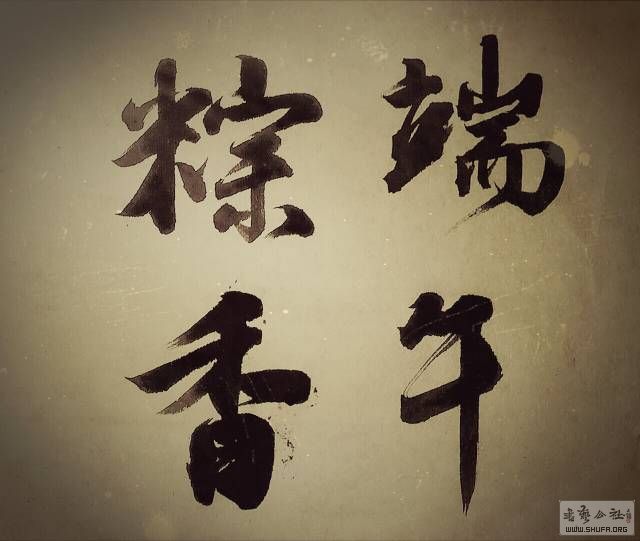 端午
粽香
书艺公社
WWW.SHUFA.ORG